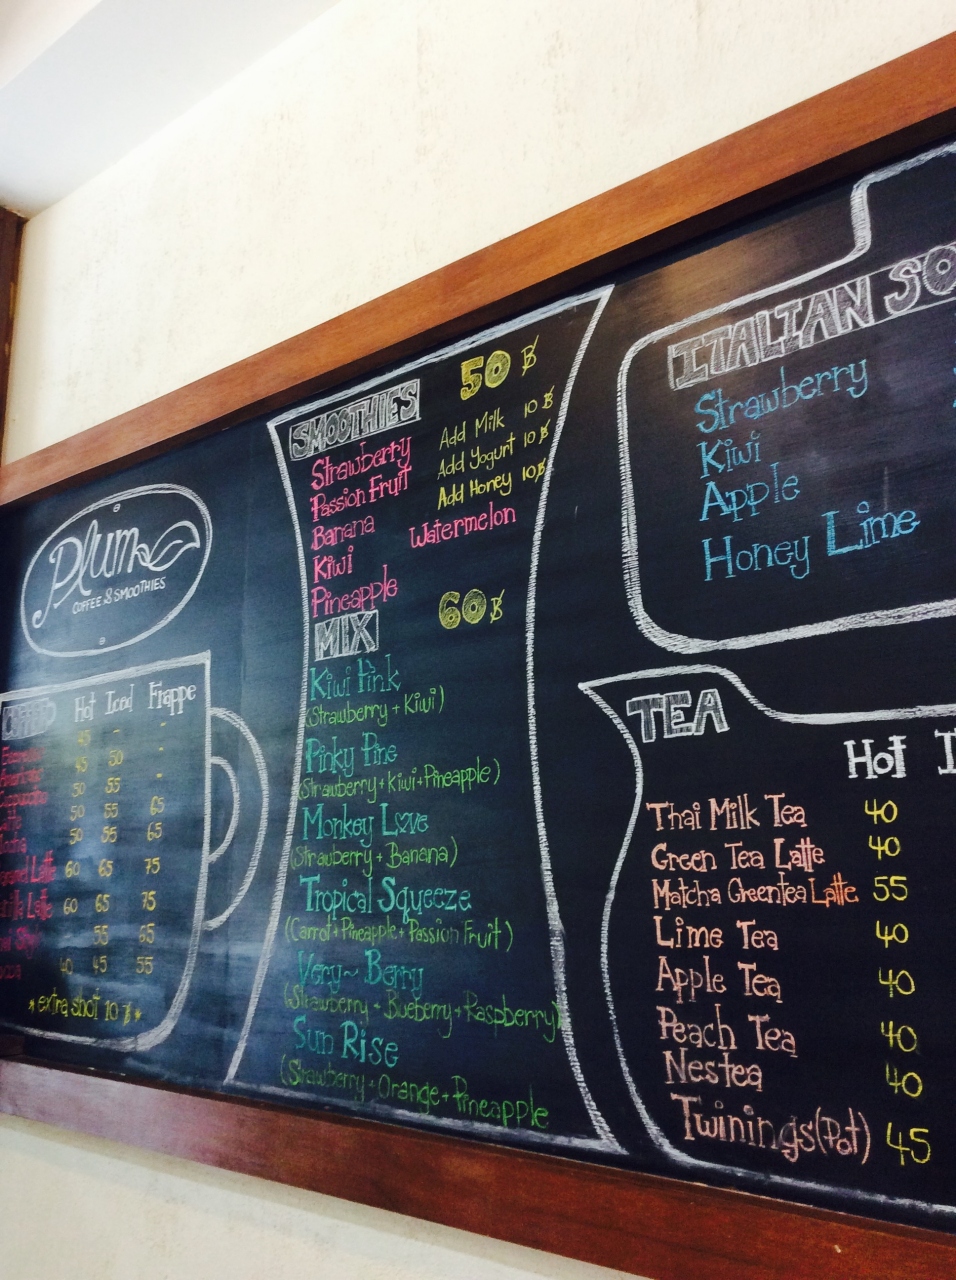 Plum
COFFEE & SMOOTHIES
Hot Iced Frappe
45 - -
45 50 -
50 55 -
50 55 65
50 55 65
Latte 60 65 75
Latte 60 65 75
55 65
40 45 55
*extra shot 10 ฿*
SMOOTHIES 50 ฿
Strawberry Add Milk 10 ฿
Passion Fruit Add Yogurt 10 ฿
Banana Add Honey 10 ฿
Kiwi Watermelon
Pineapple
MIX 60 ฿
Kiwi Pink
(Strawberry + Kiwi)
Pinky Pine
(Strawberry + Kiwi + Pineapple)
Monkey Love
(Strawberry + Banana)
Tropical Squeeze
(Carrot + Pineapple + Passion Fruit)
Very~ Berry
(Strawberry + Blueberry + Raspberry)
Sun Rise
(Strawberry + Orange + Pineapple
ITALIAN SO
Strawberry
Kiwi
Apple
Honey Lime
TEA
Hot I
Thai Milk Tea 40
Green Tea Latte 40
Matcha Greentea Latte 55
Lime Tea 40
Apple Tea 40
Peach Tea 40
Nestea 40
Twinings (Pot) 45